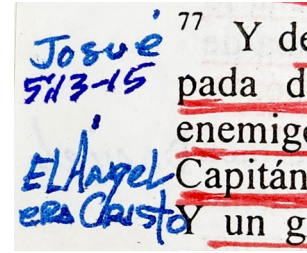 Josué
5:13-15
El Ángel
era Cristo
77 Y de
pada d
enemigo
Capitán
Y un g